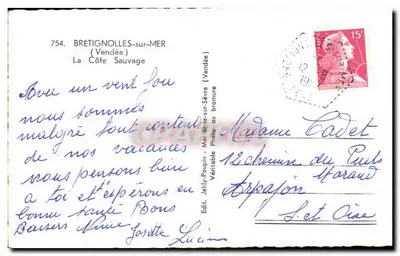 754. BRETIGNOLLES-sur-MER
(Vendée)
La Côte Sauvage
Avec un vent fou
nous sommes
malgré tout contents
de nos vacances
nous pensons bien
à toi et t'espérons en
bonne santé Bons
Baisers Mme Josette Lucien
Edit. Jehly-Poupin - Mortagne-sur-Sèvre (Vendée)
Véritable Photo au bromure
15F
12
19
Madame Cadet
12 chemin du Puits
Morand
Arpajon
S. et Oise